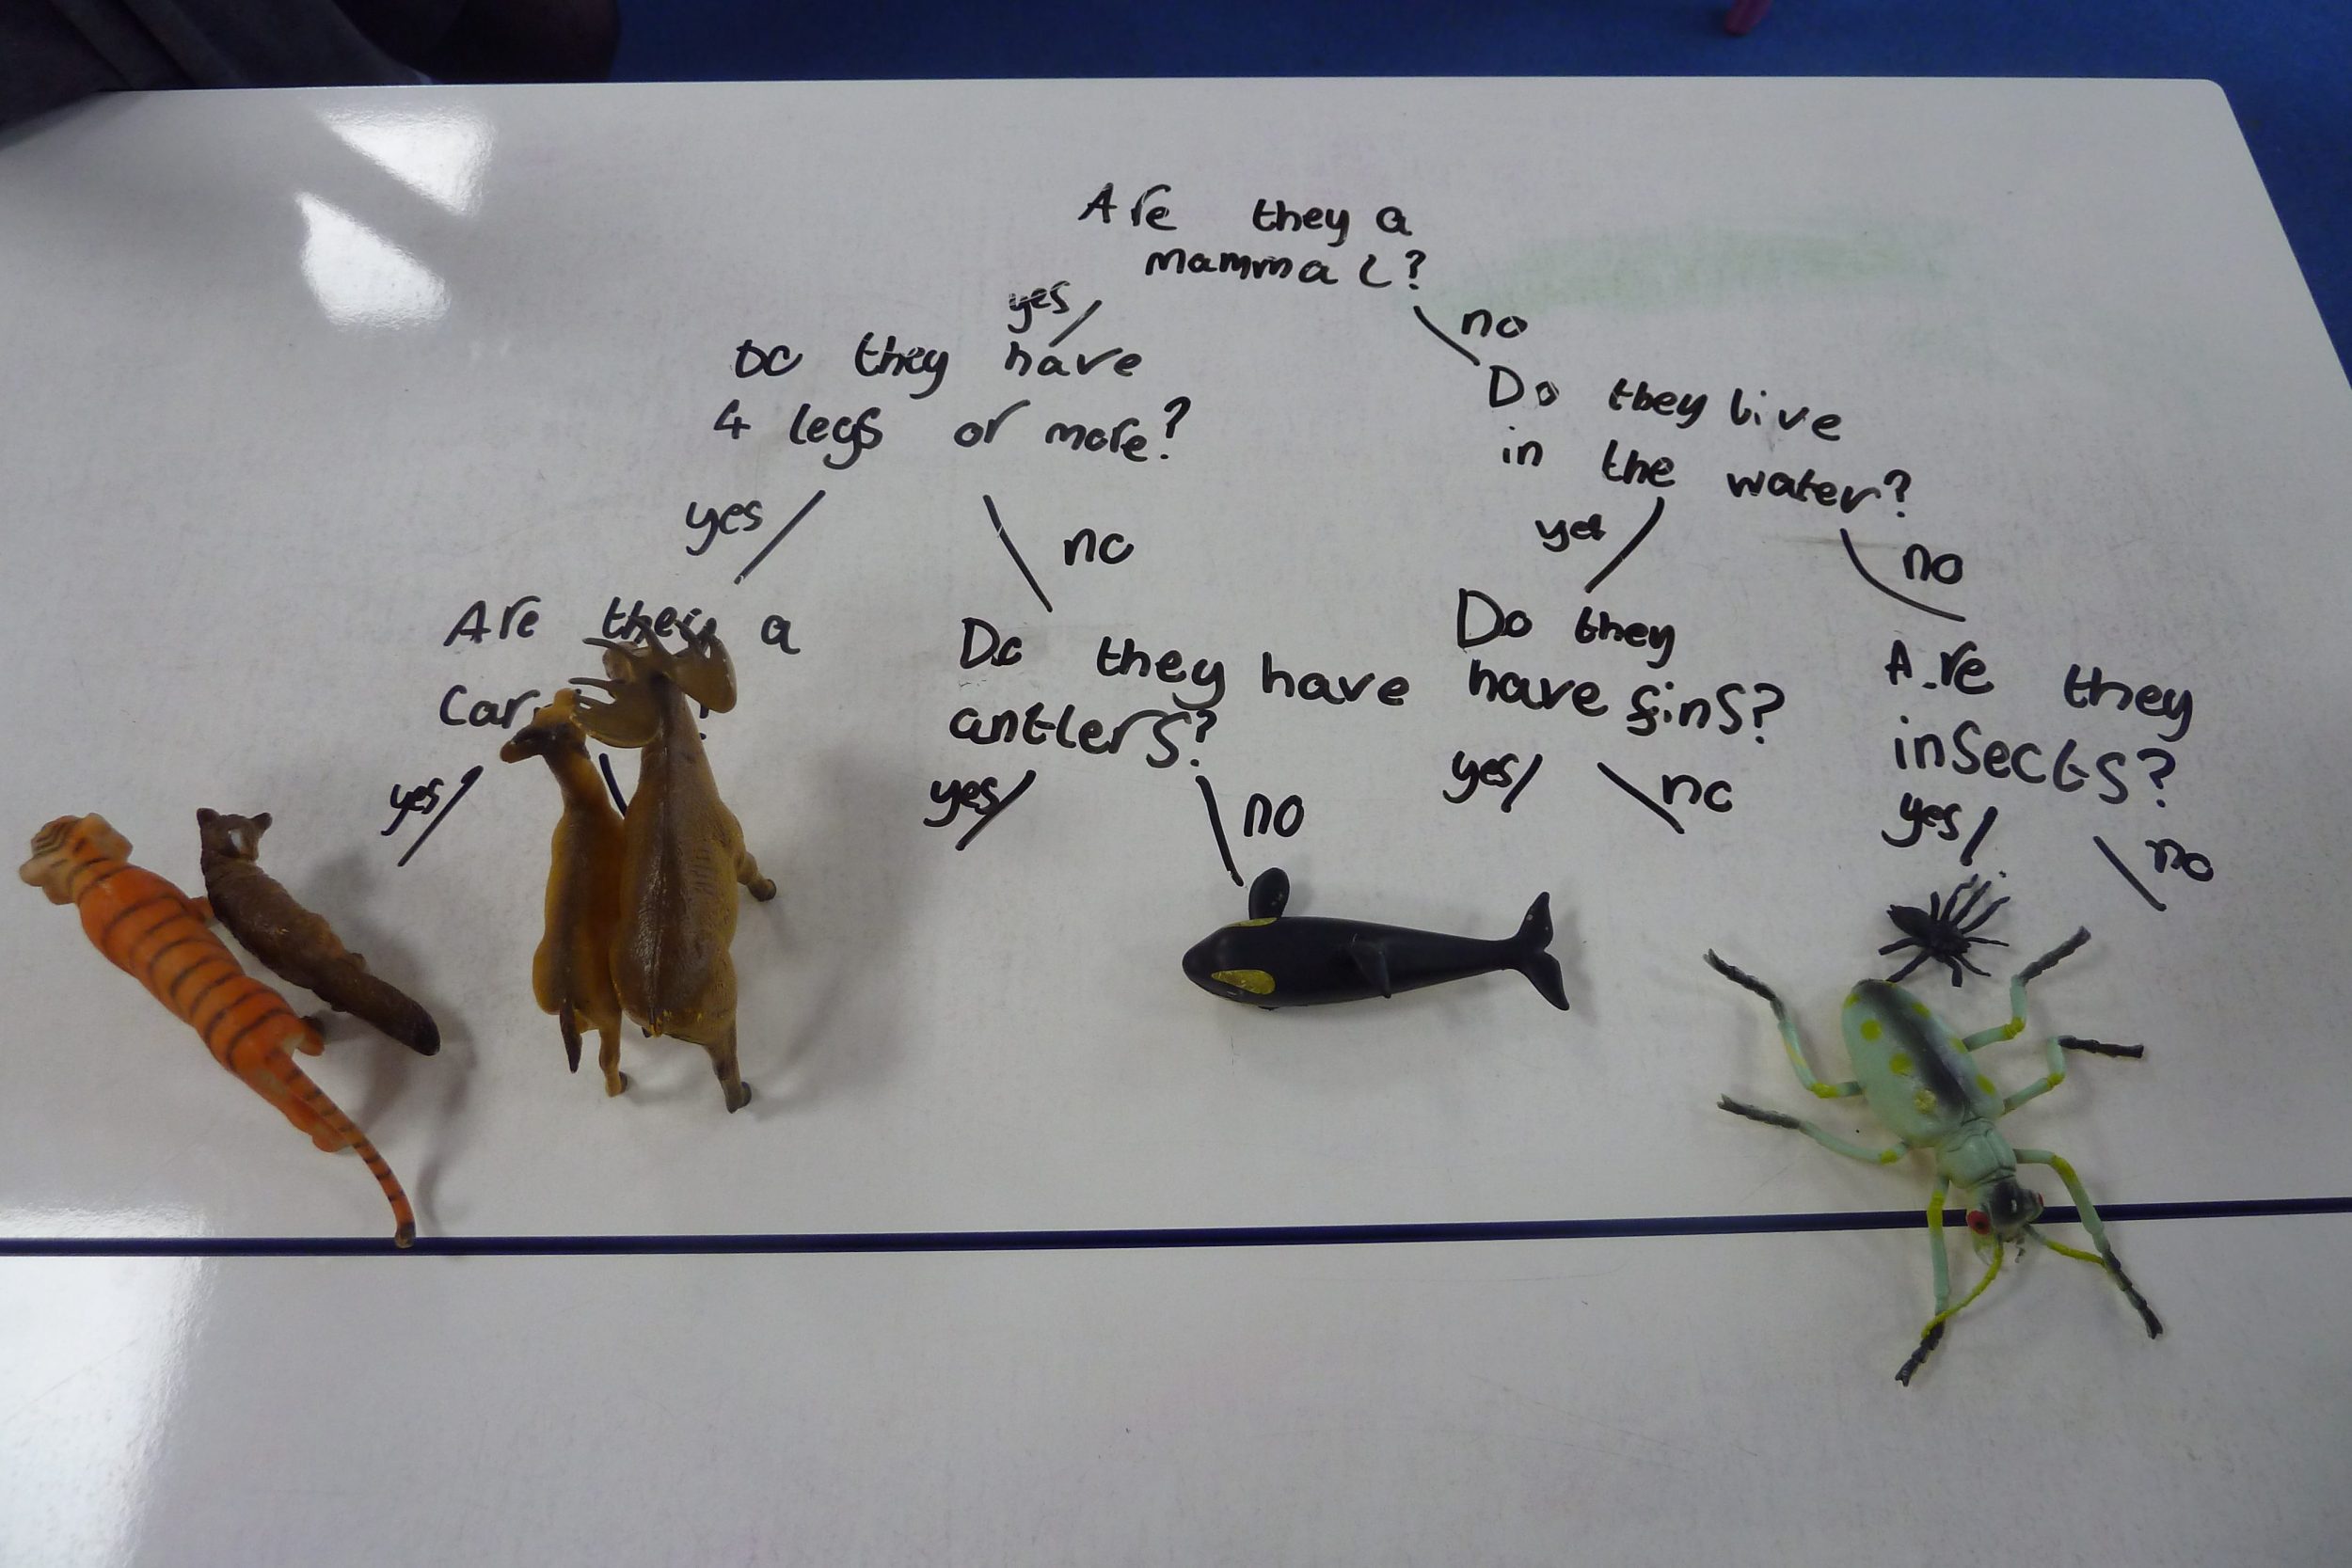 Are they a
mammal?
yes
no
Do they have
4 legs or more?
Do they live
in the water?
yes
no
yes
no
Are they a
Do they have
antlers?
Do they
have fins?
Are they
insects?
yes
yes
no
yes
no
yes
no